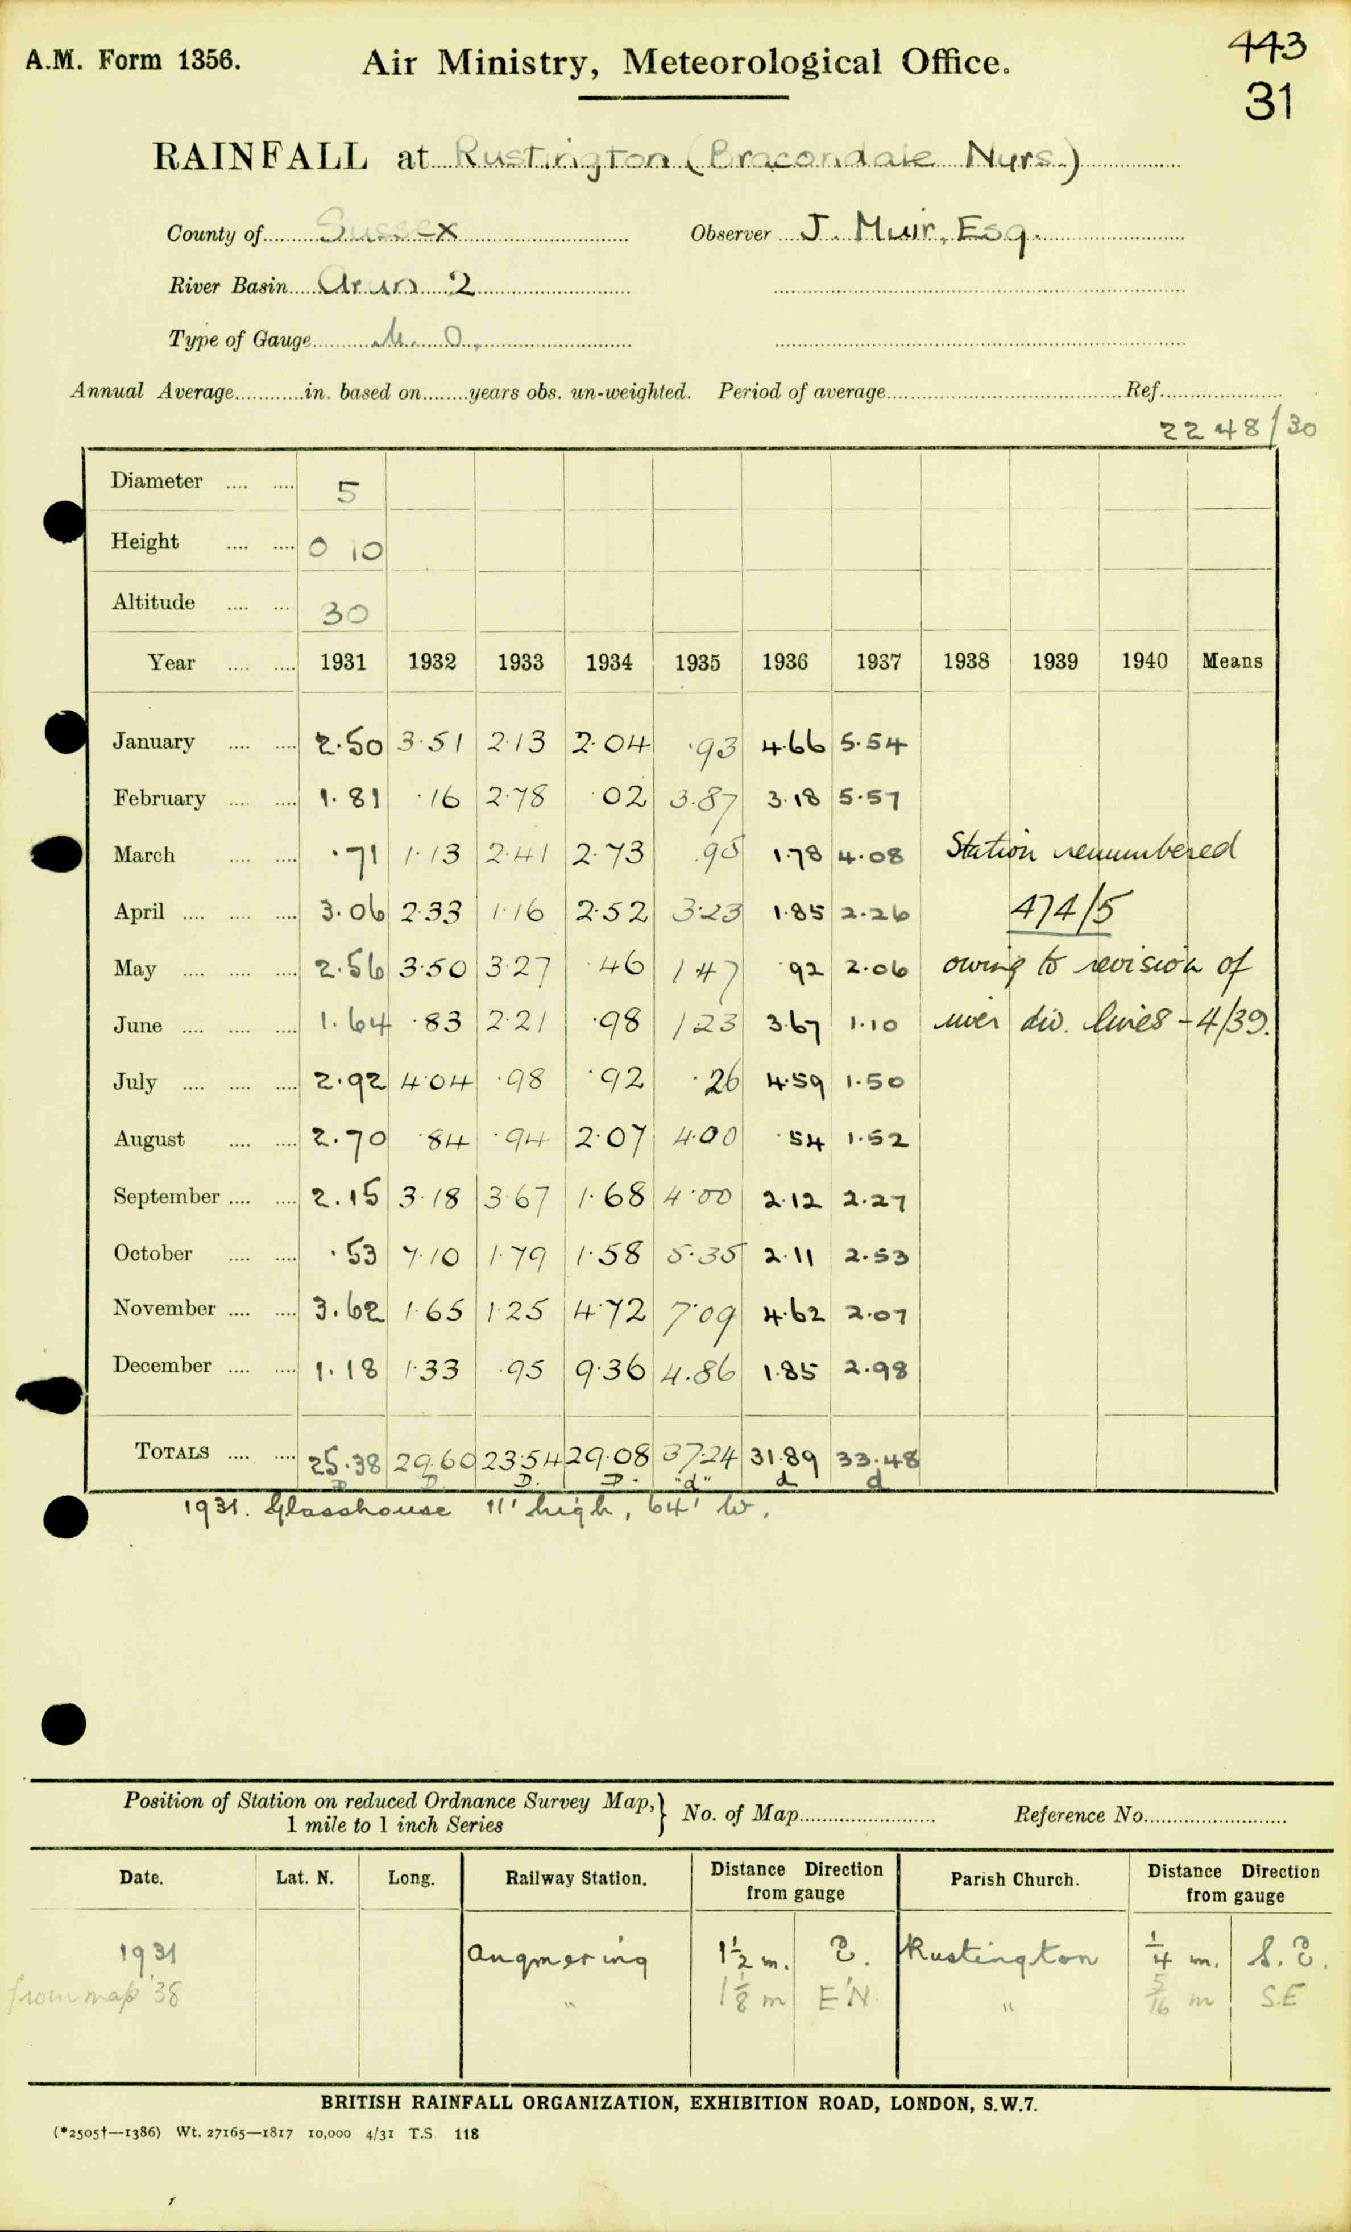 A.M. Form 1356.
Air Ministry, Meteorological Office.
443
31
RAINFALL at Rustington (Bracondale Nurs.)
County of Sussex Observer J. Muir, Esq.
River Basin Arun 2
Type of Gauge M. O.
Annual Average in. based on years obs. un-weighted. Period of average Ref.
2248/30
Diameter 5
Height 0 10
Altitude 30
Year 1931 1932 1933 1934 1935 1936 1937 1938 1939 1940 Means
January 2.50 3.51 2.13 2.04 .93 4.66 5.54
February 1.81 .16 2.78 .02 3.87 3.18 5.57
March .71 1.13 2.41 2.73 .95 1.78 4.08 Station renumbered
April 3.06 2.33 1.16 2.52 3.23 1.85 2.26 474/5
May 2.56 3.50 3.27 .46 1.47 .92 2.06 owing to revision of
June 1.64 .83 2.21 .98 1.23 3.67 1.10 river div. lines - 4/39.
July 2.92 4.04 .98 .92 .26 4.59 1.50
August 2.70 .84 .94 2.07 4.00 .54 1.52
September 2.15 3.18 3.67 1.68 4.00 2.12 2.27
October .53 7.10 1.79 1.58 5.35 2.11 2.53
November 3.62 1.65 1.25 4.72 7.09 4.62 2.07
December 1.18 1.33 .95 9.36 4.86 1.85 2.98
TOTALS 25.38 29.60 23.54 29.08 37.24 31.89 33.48
D D. D. D. "d" d d
1931. Glasshouse 11' high, 64' W.
Position of Station on reduced Ordnance Survey Map, } No. of Map Reference No.
1 mile to 1 inch Series
Date. Lat. N. Long. Railway Station. Distance Direction from gauge Parish Church. Distance Direction from gauge
1931 Angmering 1½ m. E. Rustington ¼ m. S. E.
from map '38 " 1⅛ m E'N. " 5/16 m S.E
BRITISH RAINFALL ORGANIZATION, EXHIBITION ROAD, LONDON, S.W.7.
(*2505†—1386) Wt. 27165—1817 10,000 4/31 T.S. 118